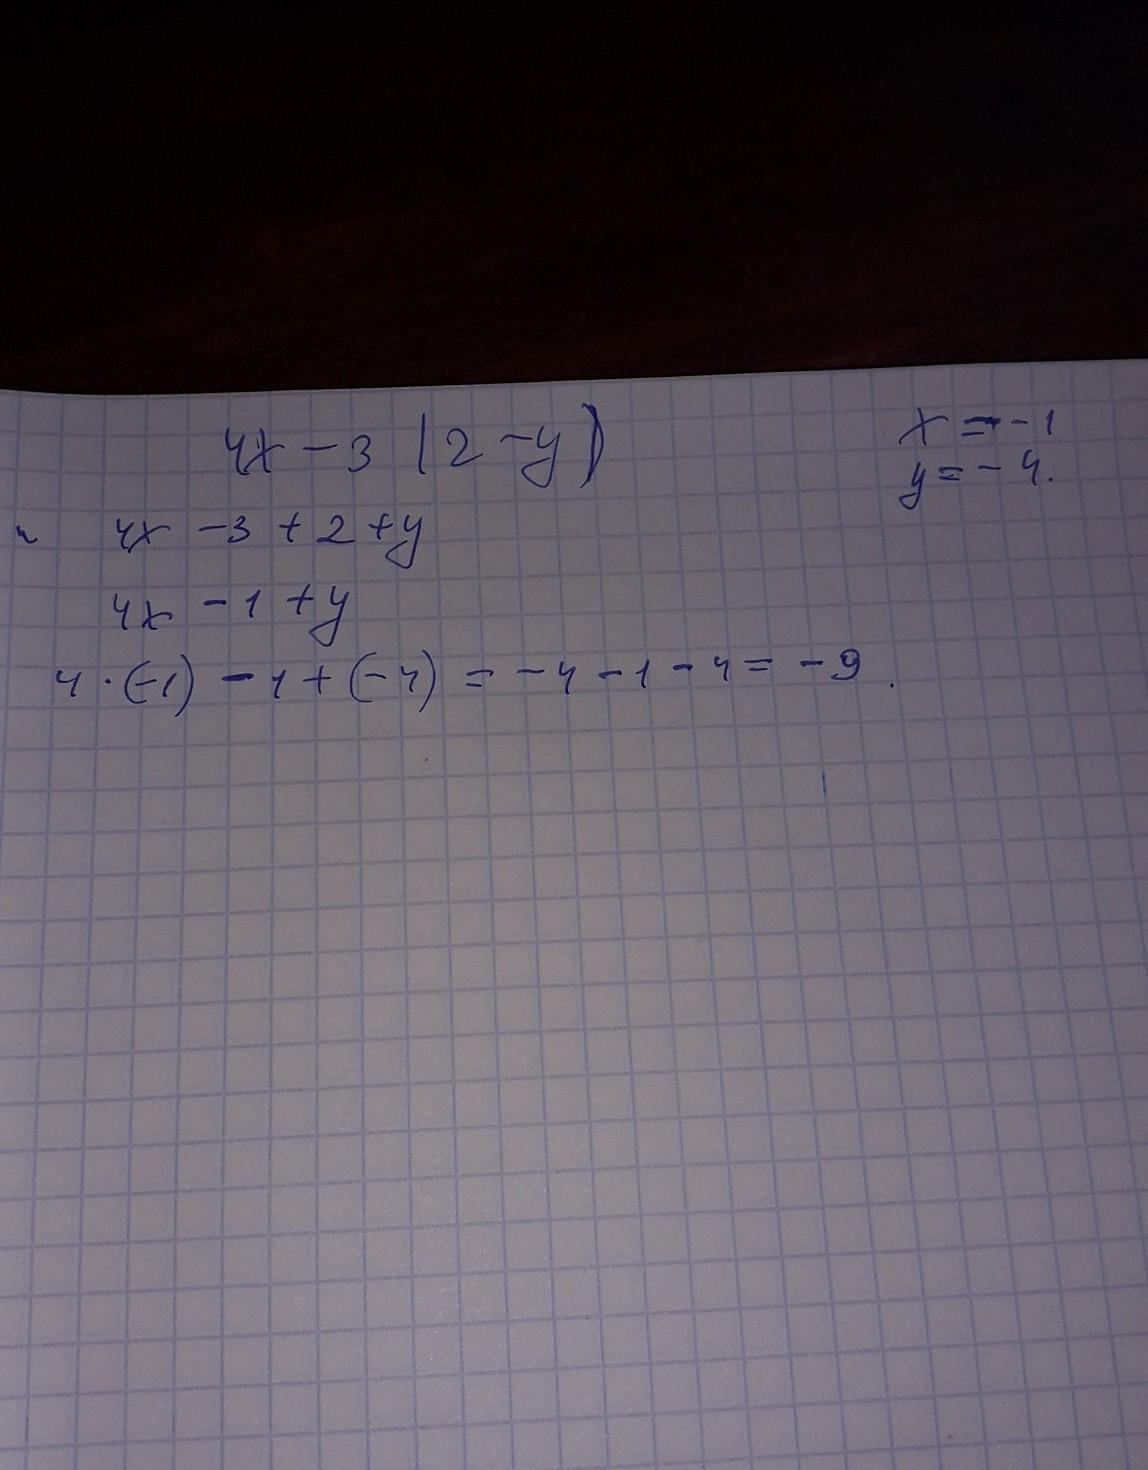 4x - 3 (2 - y)
x = -1
y = -4.
4x - 3 + 2 + y
4x - 1 + y
4 · (-1) - 1 + (-4) = -4 - 1 - 4 = -9.